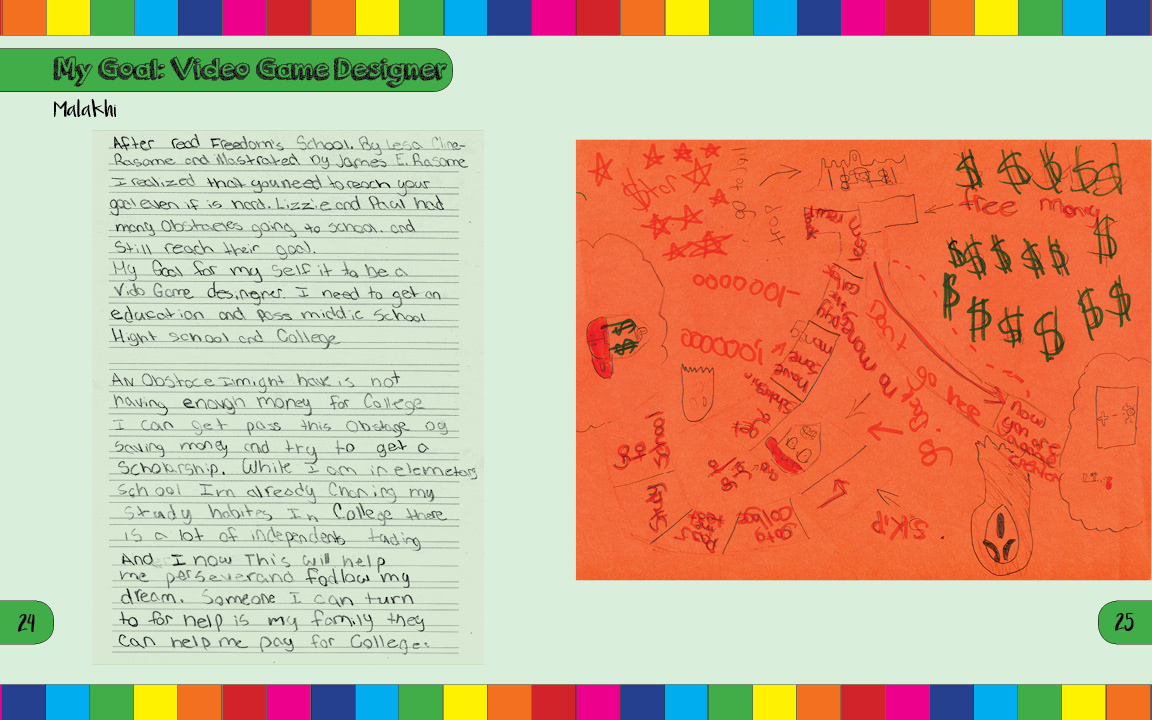 My Goal: Video Game Designer
Malakhi
After read Freedom's School. By Lesa Cline-
Rasome and Illastrated by James E. Rasome
I realized that you need to reach your
goal even if is hard. Lizzie and Paul had
many Obstacles going to school. and
Still reach their goal.
My Goal for my self it to be a
Vido Game desingner. I need to get an
education and Pass middle School
Hight school and College
An Obstace I might have is not
having enough money for College
I can get pass this Obstage og
Saving money and try to get a
Scholarship. While I am in elemetory
School Im already Chaning my
Study habites In College there
is a lot of independent
And I now This will help
me perseverand follow my
dream. Someone I can turn
to for help is my family they
Can help me pay for College.
24
Star
go to jail
free money
-1000000
1,000000
Don't
no money
have
get
Scholarship
now
you are
a game
School
Study
Pass
test
go to
College
Skip
25